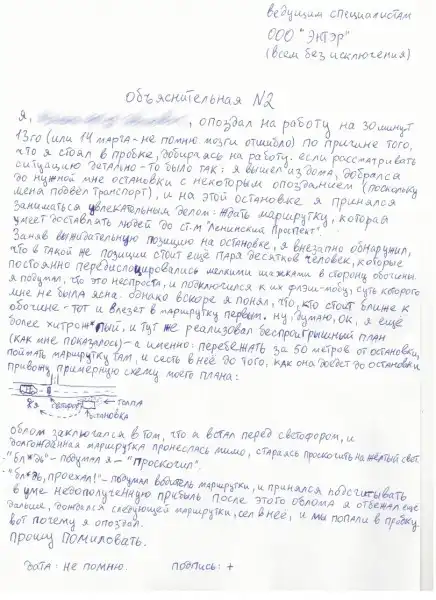 ведущим специалистам
ООО "ЭНТЭР"
(всем без исключения)
Объяснительная №2
Я, опоздал на работу на 30 минут
13го (или 14 марта - не помню. мозги отшибло) по причине того,
что я стоял в пробке, добираясь на работу. если рассматривать
ситуацию детально - то было так: я вышел из дома, добрался
до нужной мне остановки с некоторым опозданием (поскольку
меня подвёл транспорт), и на этой остановке я принялся
заниматься увлекательным делом: ждать маршрутку, которая
умеет доставлять людей до ст.м "Ленинский проспект".
Заняв выжидательную позицию на остановке, я внезапно обнаружил,
что в такой же позиции стоит ещё пара десятков человек, которые
постоянно передислоцировались мелкими шажками в сторону обочины.
я подумал, что это неспроста, и подключился к их флэш-мобу, суть которого
мне не была ясна. однако вскоре я понял, что, кто стоит ближе к
обочине - тот и влезет в маршрутку первым. ну, думаю, ОК, я ещё
более хитрож*пый, и тут же реализовал беспроигрышный план
(как мне показалось) - а именно: перебежать за 50 метров от остановки,
поймать маршрутку там, и сесть в неё до того, как она доедет до остановки
привожу примерную схему моего плана:
Я светофор ← толпа
остановка
облом заключался в том, что я встал перед светофором, и
долгожданная маршрутка пронеслась мимо, стараясь проскочить на жёлтый свет.
-"бл*дь" - подумал я - "проскочил".
-"бл*дь, проехал!" - подумал водитель маршрутки, и принялся подсчитывать
в уме недополученную прибыль после этого облома я отбежал ещё
дальше, дождался следующей маршрутки, сел в неё, и мы попали в пробку.
вот почему я опоздал.
прошу помиловать.
дата: не помню. подпись: +